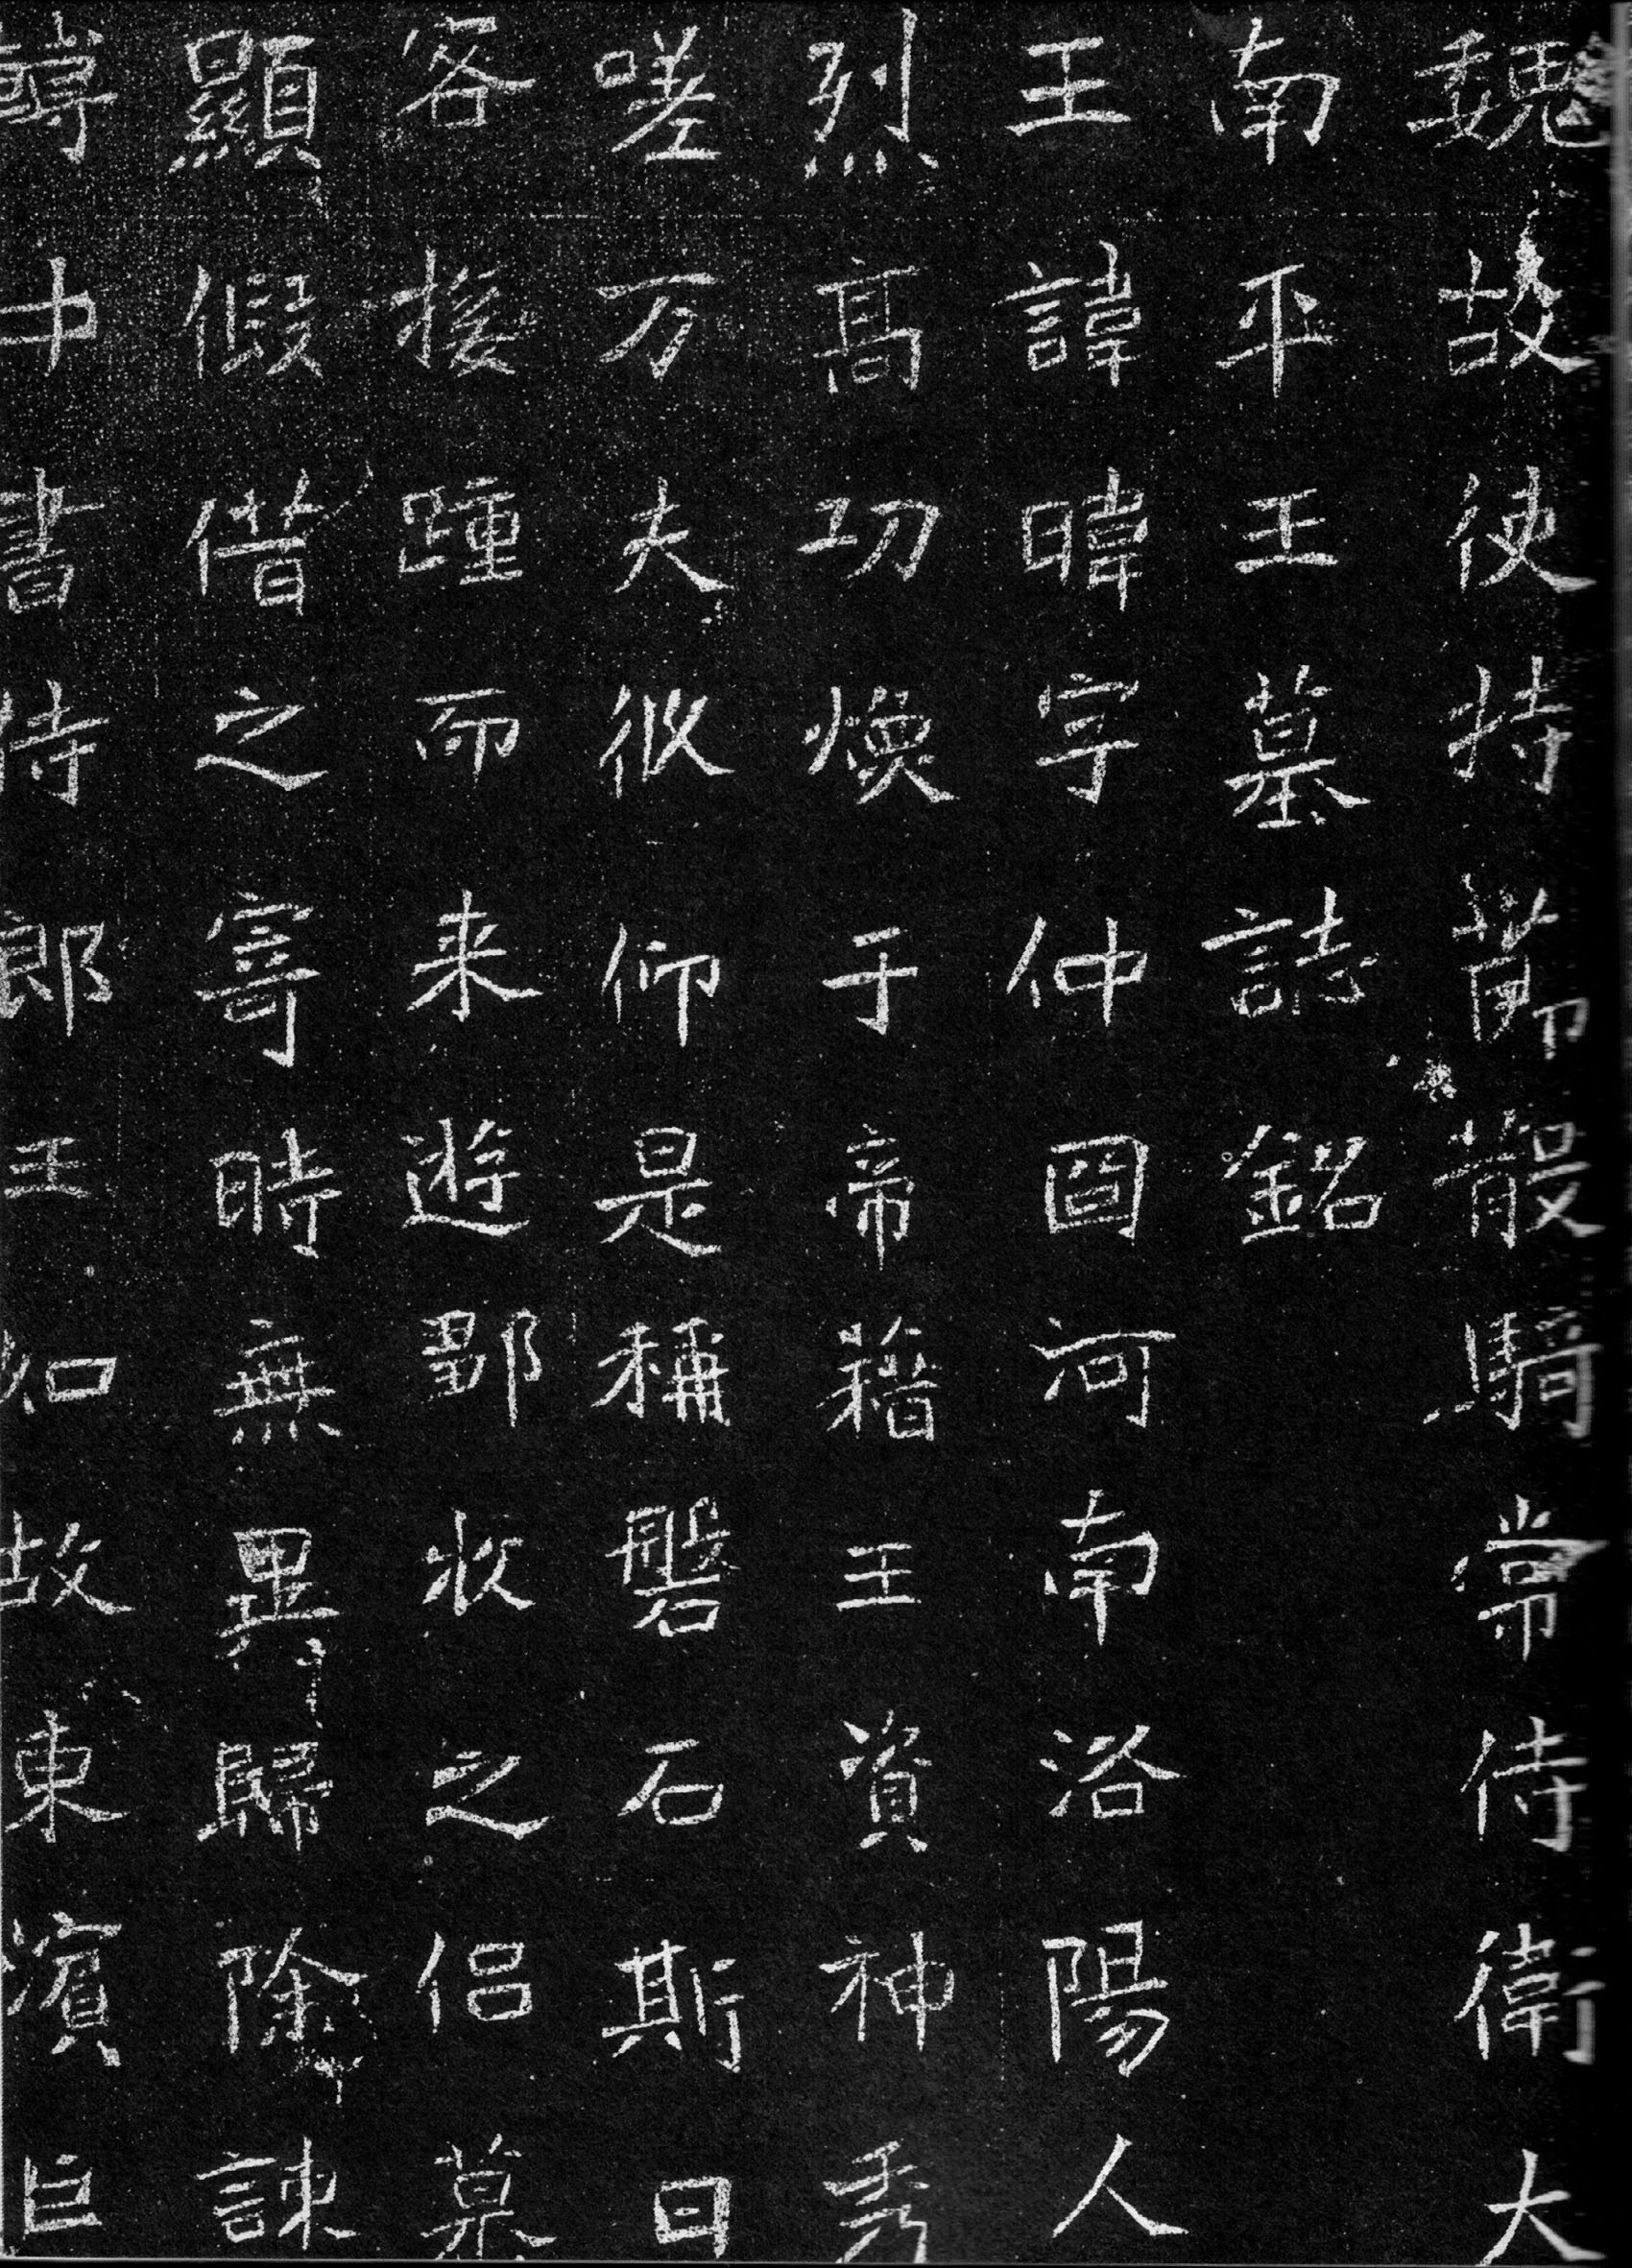 魏故使持節散騎常侍衛大
南平王墓誌銘
王諱暐字仲冏河南洛陽人
烈高功煥于帝籍王資神秀
嗟万夫攸仰是稱磐石斯曰
客接踵而来遊鄒牧之侣慕
顯假借之寄時無異歸除諫
轉中書侍郎王如故東濱巨